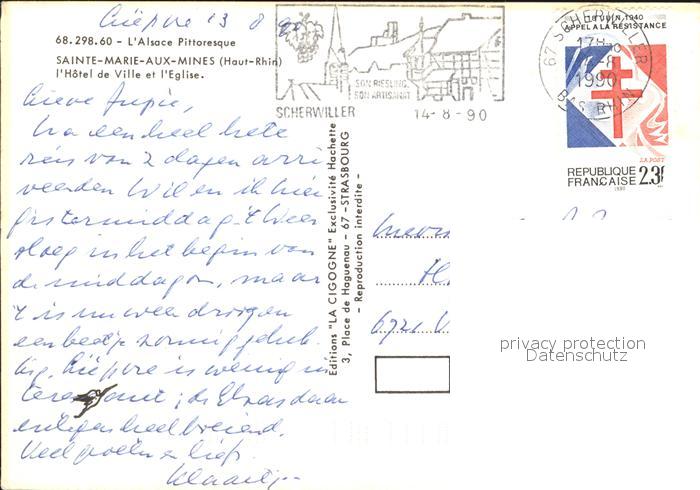 Lièpvre 13 8 90
68.298.60 - L'Alsace Pittoresque
SAINTE-MARIE-AUX-MINES (Haut-Rhin)
l'Hôtel de Ville et l'Eglise.
Lieve
Na een heel hete
reis van 2 dagen arri
veerden Wil en ik hier
gistermiddag. 't Weer
sloeg in het begin van
de middag om, maar
't is nu weer droog en
een beetje zonnig
Lièpvre is weinig in
teressant; de Elzas daar
entegen heel boeiend.
Veel groeten en liefs
Klaartje
SON RIESLING
SON ARTISANAT
SCHERWILLER
14-8-90
67 SCHERWILLER
1990
BAS RHIN
18 JUIN 1940
APPEL A LA RÉSISTANCE
LA POST
REPUBLIQUE
FRANÇAISE 2.3
1990
Editions "LA CIGOGNE" Exclusivité Hachette
3, Place de Haguenau - 67 - STRASBOURG
- Reproduction interdite -
Mevr
H.
6721 V
privacy protection
Datenschutz